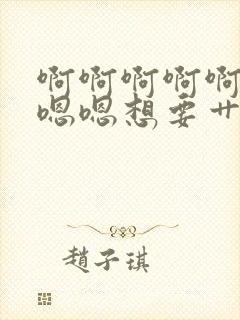 啊啊啊啊啊
嗯嗯想要艹
趙子琪